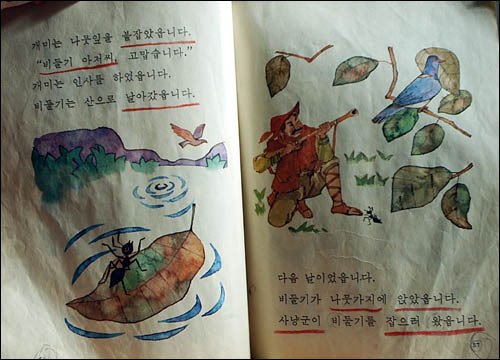 개미는 나뭇잎을 붙잡았읍니다.
"비둘기 아저씨, 고맙습니다."
개미는 인사를 하였읍니다.
비둘기는 산으로 날아갔읍니다.
다음 날이었읍니다.
비둘기가 나뭇가지에 앉았읍니다.
사냥군이 비둘기를 잡으러 왔읍니다.
57